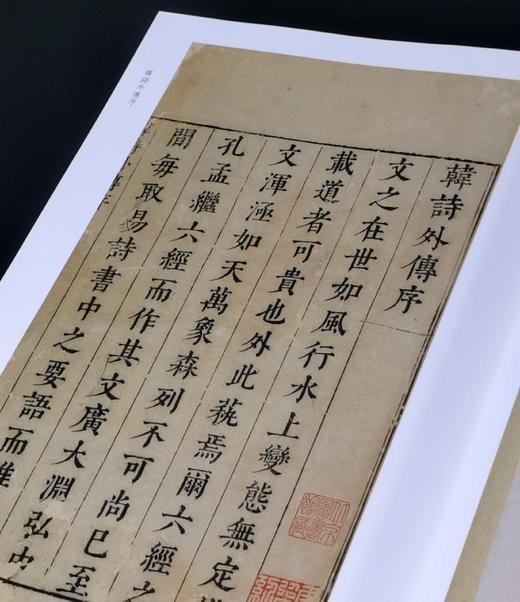 韓詩外傳序
文之在世如風行水上變態無定
載道者可貴也外此蓺焉爾六經之
文渾涵如天萬象森列不可尚已至
孔孟繼六經而作其文廣大淵弘
間每取易詩書中之要語而推
韓詩外傳序